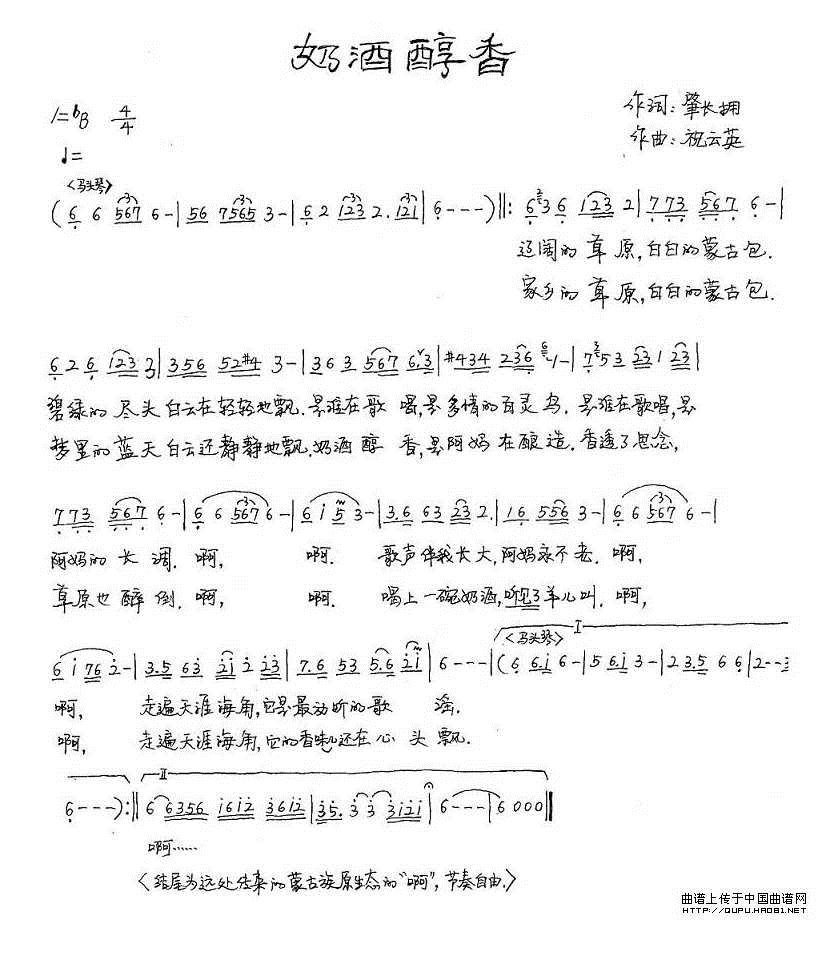 奶酒醇香
1=bB 4/4
作词:肇长拥
作曲:祝云英
♩=
<马头琴>
(6 6 567 6-|56 7565 3-|6 2 123 2. 121|6---)||: 6 3 6 123 2|773 567 6-|
辽阔的草原,白白的蒙古包.
家乡的草原,白白的蒙古包.
6 2 6 123 3|356 52#4 3-|36 3 567 6.3|#434 236 1-|7 53 231 23|
碧绿的尽头白云在轻轻地飘.是谁在歌唱,是多情的百灵鸟.是谁在歌唱,是
梦里的蓝天白云还静静地飘.奶酒醇香,是阿妈在酿造.香透了思念,
773 567 6-|6 6 567 6-|6 1 5 3-|3.6 63 23 2.|16 556 3-|6 6 567 6-|
阿妈的长调.啊, 啊. 歌声伴我长大,阿妈永不老.啊,
草原也醉倒.啊, 啊. 喝上一碗奶酒,听见了羊儿叫.啊,
I
<马头琴>
6 1 76 2-|3.5 63 21 2 23|7.6 53 5.6 21|6---|(6 6.1 6-|5 6.1 3-|2 3.5 6 6|2---
啊, 走遍天涯海角,它是最动听的歌谣.
啊, 走遍天涯海角,它的香味儿还在心头飘.
II
6---):|| 6 6356 1612 3612|35. 3 3 3121|6---|6000||
啊……
<结尾为远处传来的蒙古族原生态的"啊",节奏自由.>
曲谱上传于中国曲谱网
HTTP://QUPU.HAO81.NET